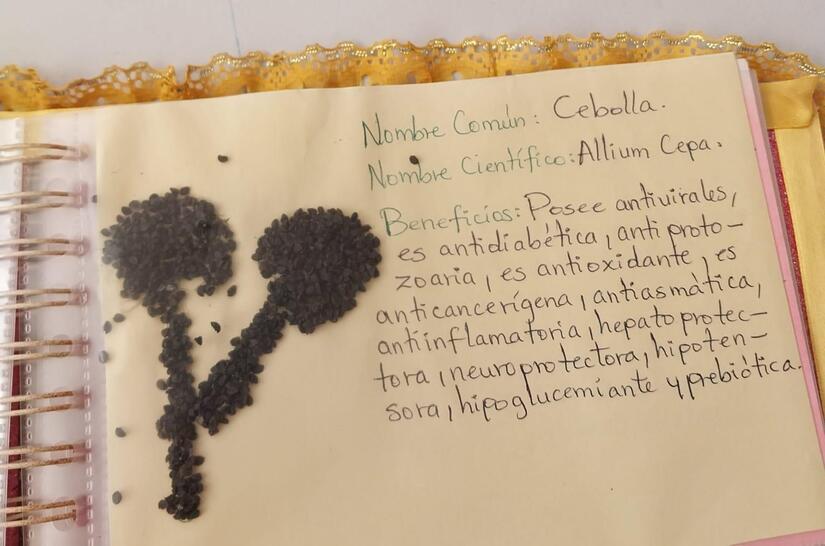 Nombre Común: Cebolla.
Nombre Científico: Allium Cepa.
Beneficios: Posee antivirales,
es antidiabética, antiproto-
zoaria, es antioxidante, es
anticancerígena, antiasmàtica,
antiinflamatoria, hepatoprotec-
tora, neuroprotectora, hipoten-
sora, hipoglucemiante y prebiótica.